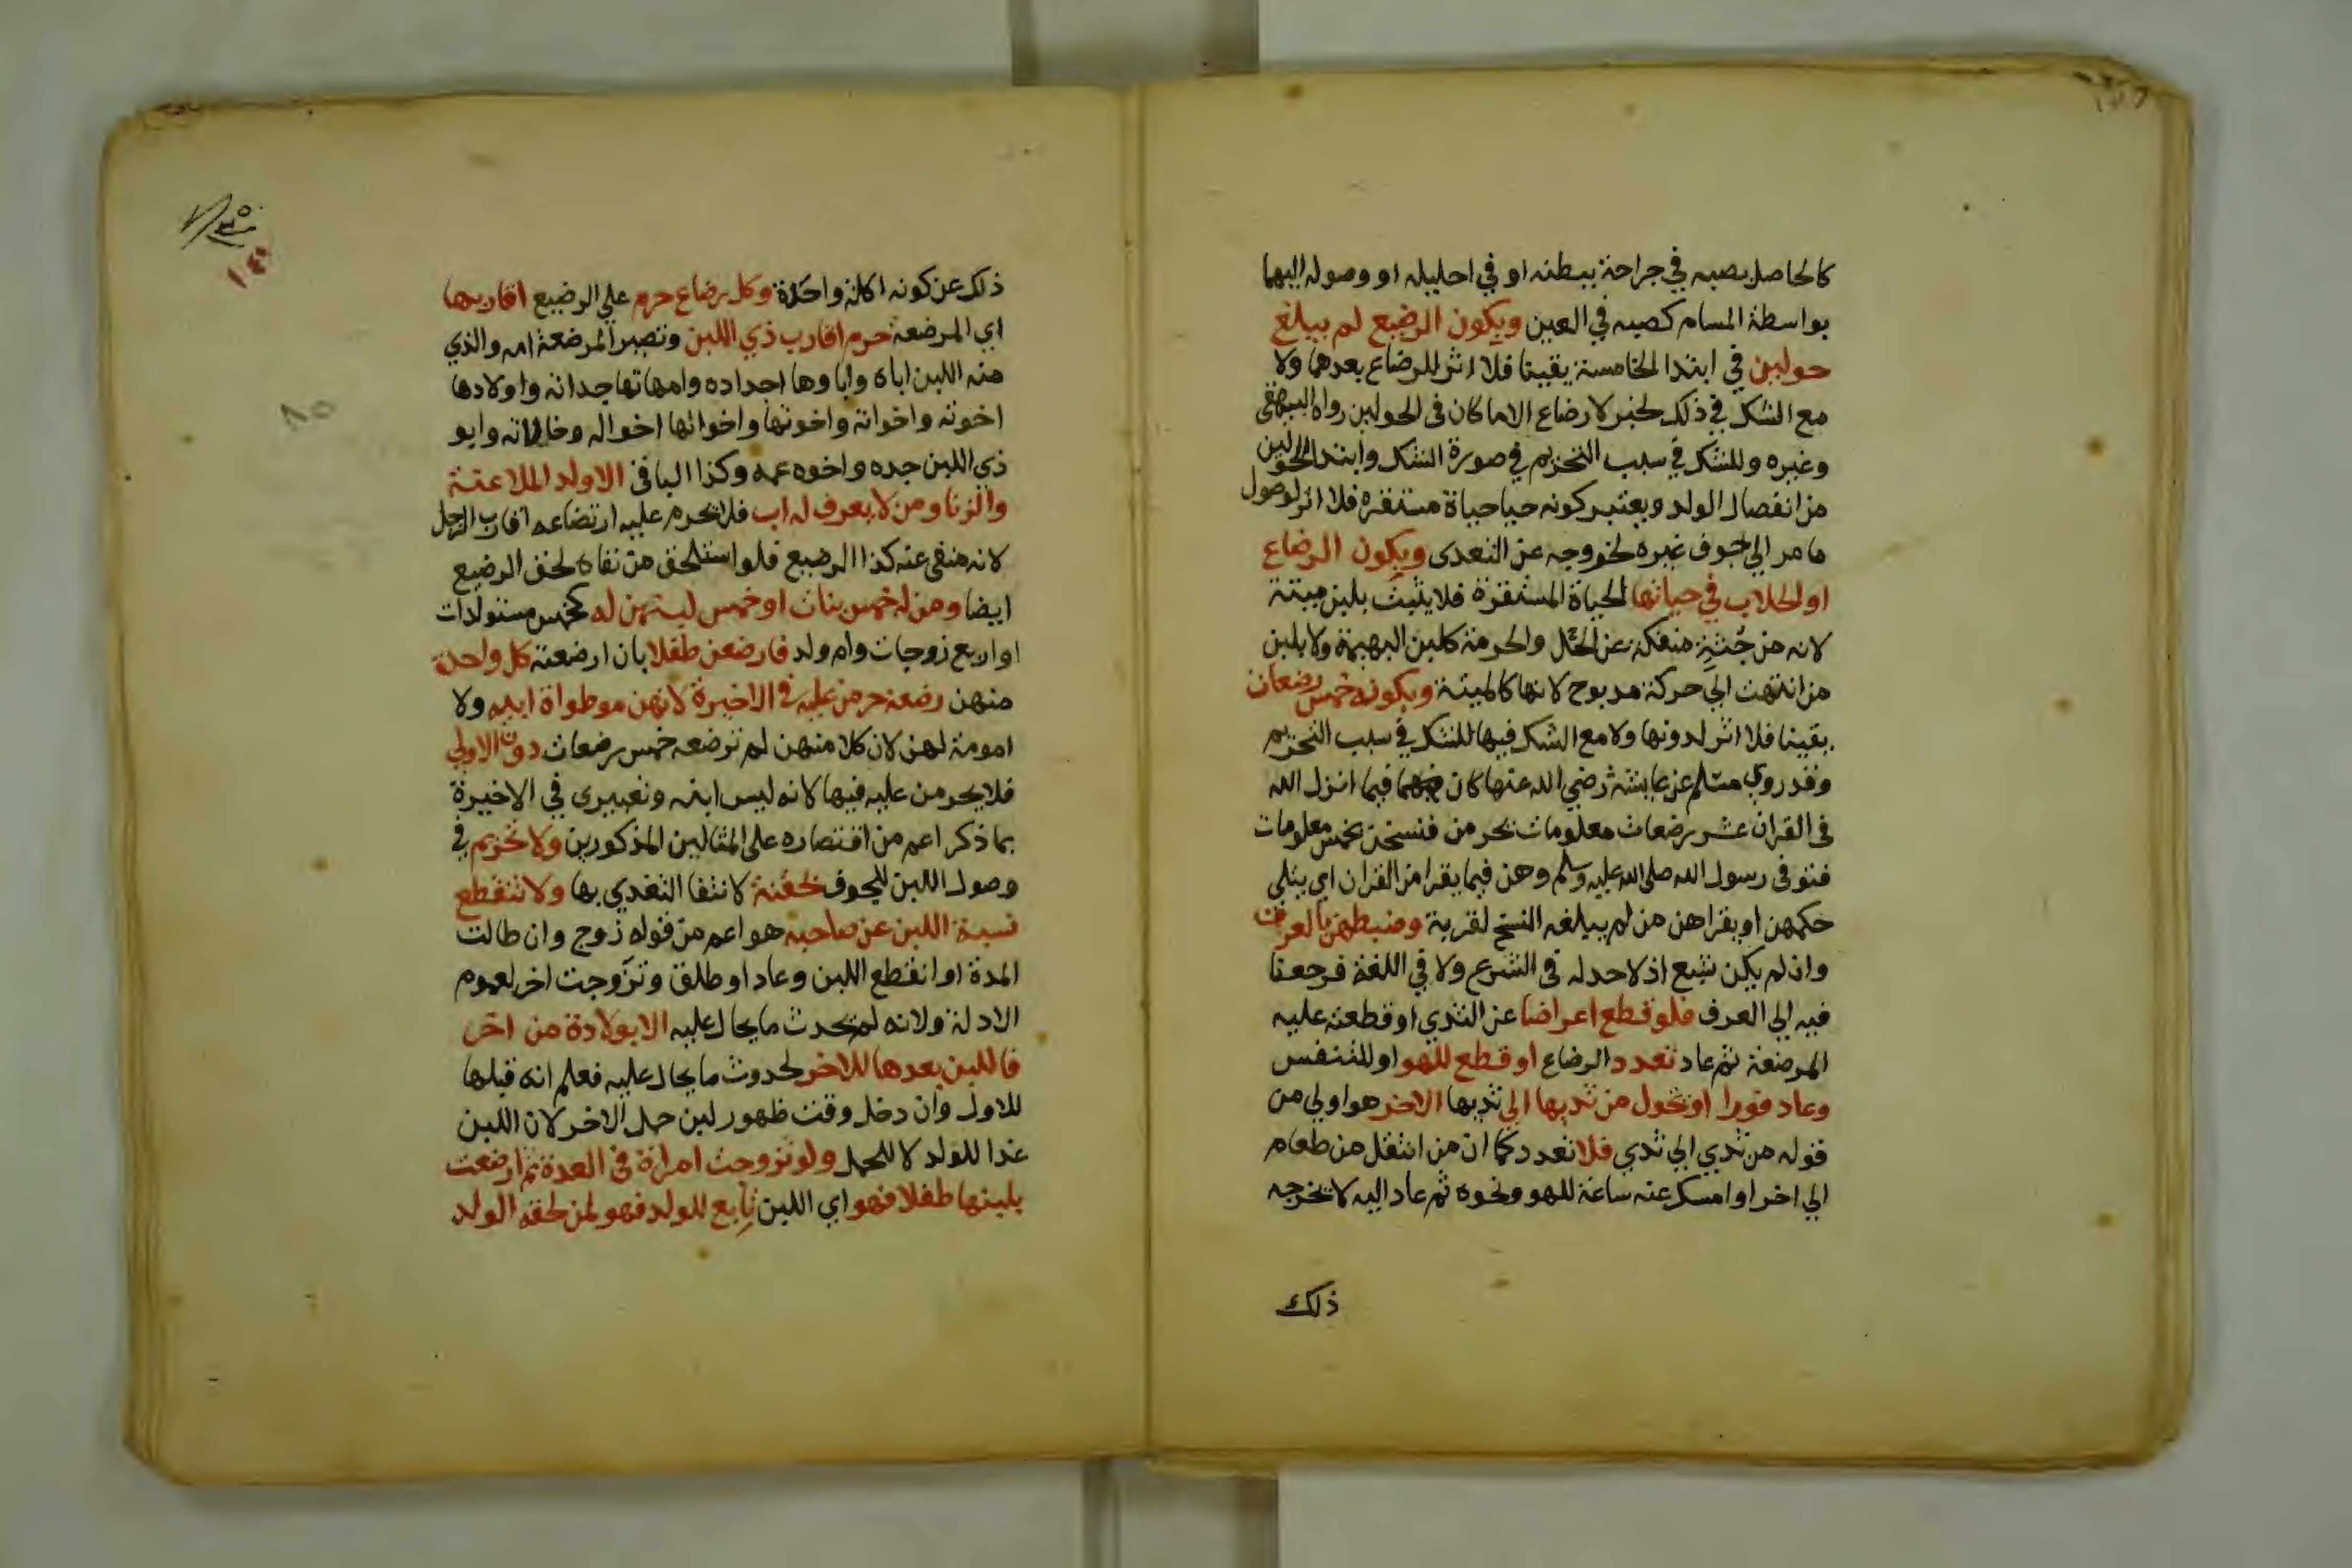 كالحاصل بصبه في جراحة ببطنه او في احليله او وصوله اليها
بواسطة المسام كصبه في العين ويكون الرضيع لم يبلغ
حولين في ابتدا الخامسة يقينا فلا اثر للرضاع بعدهما ولا
مع الشك في ذلك لخبر لا رضاع الا ما كان في الحولين رواه البيهقي
وغيره وللشك في سبب التحريم في صورة الشك وابتدا الحولين
من انفصال الولد ويعتبر كونه حيا حياة مستقرة فلا اثر لوصول
ما مر الي جوف غيره لخروجه عن التغدى ويكون الرضاع
او الحلاب في حياتها الحياة المستقرة فلا يثبت بلبن ميتة
لانه من جثة منفكة عن الحل والحرمة كلبن البهيمة ولا بلبن
من انتهت الي حركة مدبوح لانها كالميتة ويكونه خمس رضعات
يقينا فلا اثر لدونها ولا مع الشك فيها للشك في سبب التحريم
وقد روي مسلم عن عايشة رضي الله عنها كان فيما انزل الله
في القران عشر رضعات معلومات يحرمن فنسخن بخمس معلومات
فتوفى رسول الله صلى الله عليه وسلم وهن فيما يقرا من القران اي يتلي
حكمهن او يقراهن من لم يبلغه النسخ لقربة وضبطهن بالعرف
وان لم يكن شبع اذ لا حد له في الشرع ولا في اللغة فرجعنا
فيه الي العرف فلو قطع اعراضا عن الثدي او قطعته عليه
المرضعة ثم عاد تعدد الرضاع او قطع للهو او للتنفس
وعاد فورا او تحول من ثديها الي ثديها الاخر هو اولي من
قوله من ثدي الي ثدي فلا تعدد كما ان من انتقل من طعام
الي اخر او امسك عنه ساعة للهو ونحوه ثم عاد اليه لا تخرجه
ذلك
ذلك عن كونه اكلة واحدة وكل رضاع حرم علي الرضيع اقاربها
اي المرضعة حرم اقارب ذي اللبن وتصير المرضعة امه والذي
منه اللبن اباه واباوها اجداده وامهاتها جداته واولادها
اخوته واخواته واخوتها واخواتها اخواله وخالاته وابو
ذي اللبن جده واخوه عمه وكذا الباقي الا ولد الملاعنة
والزنا ومن لا يعرف له اب فلا تحرم عليه ارتضاعه اقارب الرجل
لانه منفي عنه كذا الرضيع فلو استلحق من نفاه لحق الرضيع
ايضا ومن له خمس بنات او خمس لبنهن له كخمس مستولدات
او اربع زوجات وام ولد فارضعن طفلا بان ارضعته كل واحدة
منهن رضعة حرمن عليه في الاخيرة لانهن موطواة ابيه ولا
امومة لهن لان كلا منهن لم ترضعه خمس رضعات دون الاولي
فلا يحرمن عليه فيها لانه ليس ابنه وتعبيري في الاخيرة
بما ذكر اعم من اقتصاره على المثالين المذكورين ولا تحريم في
وصول اللبن للجوف بحقنة لانتفا التغدي بها ولا تنقطع
نسبة اللبن عن صاحبه هو اعم من قوله زوج وان طالت
المدة او انقطع اللبن وعاد او طلق وتزوجت اخر لعموم
الادلة ولانه لم يحدث ما يحال عليه الا بولادة من اخر
فاللبن بعدها للاخر لحدوث ما يحال عليه فعلم انه قبلها
للاول وان دخل وقت ظهور لبن حمل الاخر لان اللبن
غدا للولد لا للحمل ولو تزوجت امراة في العدة ثم ارضعت
بلبنها طفلا فهو اي اللبن تابع للولد فهو لمن لحقه الولد
٨٥